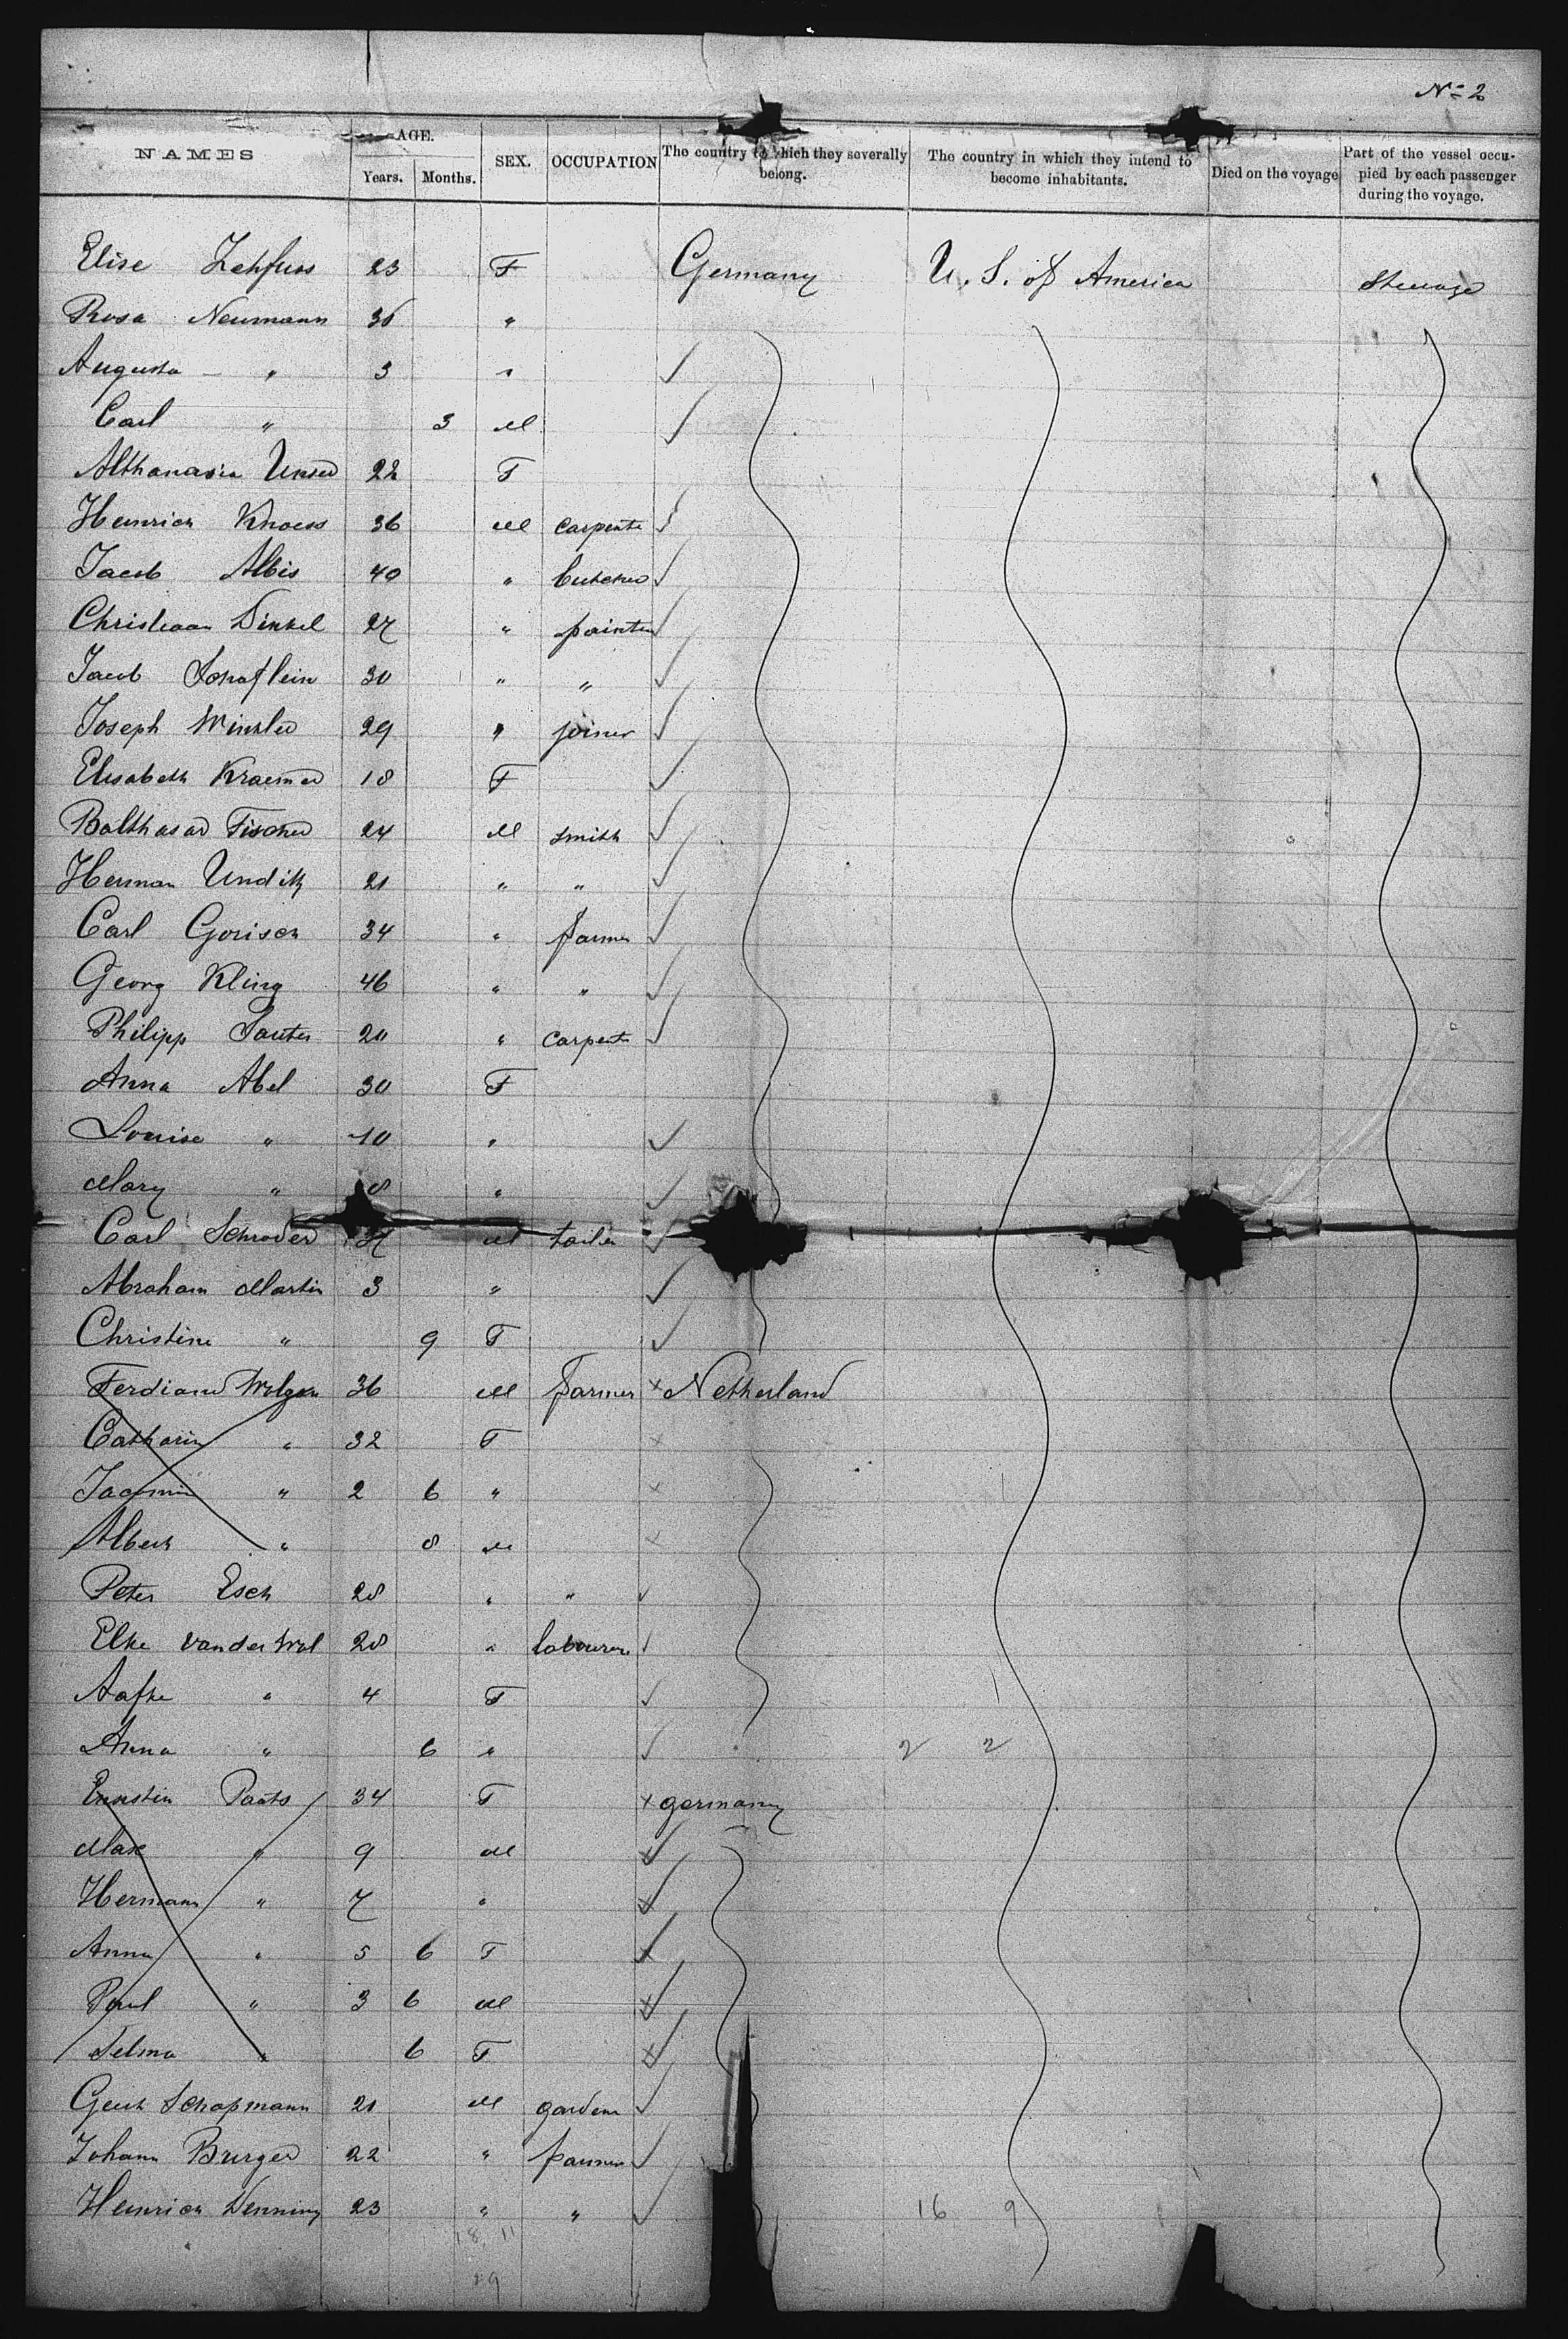 No 2
NAMES AGE. Years. Months. SEX. OCCUPATION The country to which they severally belong. The country in which they intend to become inhabitants. Died on the voyage Part of the vessel occupied by each passenger during the voyage.
Elise Zehfuss 23 F Germany U. S. of America Steerage
Rosa Neumann 36 "
Augusta " 3 " ✓
Carl " 3 M ✓
Althanasia 22 F
Heinrich Knoess 36 M carpente ✓
Jacob Albis 40 " butcher ✓
Christiaan Dinkel 27 " painter ✓
Jacob Schaflein 30 " " ✓
Joseph Winkler 29 " joiner ✓
Elisabeth Kraemer 18 F ✓
Balthasar Fischer 24 M smith ✓
Herman Unditz 21 " " ✓
Carl Gorisch 34 " farmer ✓
Georg Kling 46 " " ✓
Philipp Sauter 20 " carpente ✓
Anna Abel 30 F
Louise " 10 " ✓
Mary " 8 " ✓
Carl Schroder M tailer ✓
Abraham Martin 3 " ✓
Christine " 9 F ✓
Ferdiand 36 M farmer × Netherland
Catharin " 32 F ×
" 2 6 " ×
Albert " 8 M ×
Peter Esch 28 " " ✓
Elke van der Wal 28 " labourer ✓
Aafke " 4 F ✓
Anna " 6 " ✓ 2 2
Paats 34 F × germany
Max " 9 M ×
Hermann " 7 " ×
Anna " 5 6 F ×
Paul " 3 6 M ×
Selma " 6 F ×
Geert Schapmann 21 M gardene ✓
Johann Burger 22 " farmer ✓
Heinrich Denning 23 " " ✓ 16 9
18 11
29